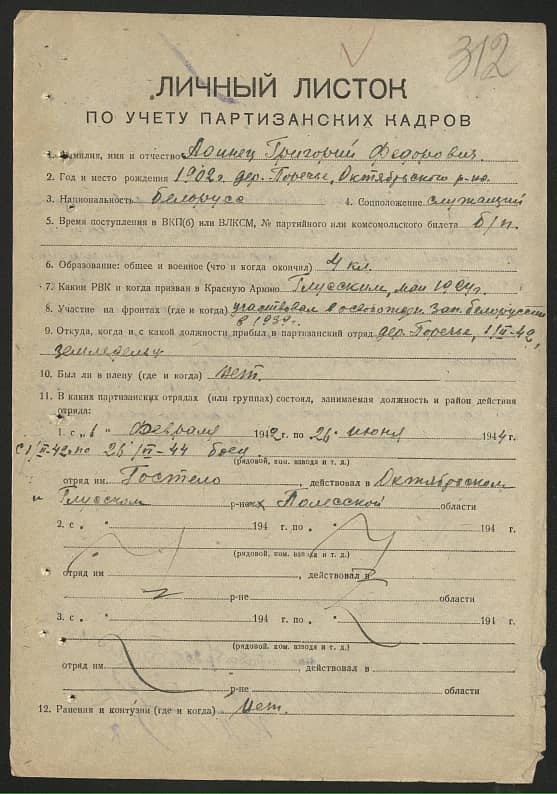 312
ЛИЧНЫЙ ЛИСТОК
ПО УЧЕТУ ПАРТИЗАНСКИХ КАДРОВ
1. Фамилия, имя и отчество Лоинец Григорий Федорович.
2. Год и место рождения 1902 г. дер. Поречье, Октябрьского р-на.
3. Национальность белорус 4. Соцположение служащий
5. Время поступления в ВКП(б) или ВЛКСМ, № партийного или комсомольского билета б/п.
6. Образование: общее и военное (что и когда окончил) 4 кл.
7. Каким РВК и когда призван в Красную Армию Глусским, май 1924 г.
8. Участие на фронтах (где и когда) участвовал в освобожден. Зап. Белоруссии
в 1939 г.
9. Откуда, когда и с какой должности прибыл в партизанский отряд дер. Поречье, 1/II-42,
земледелец
10. Был ли в плену (где и когда) нет.
11. В каких партизанских отрядах (или группах) состоял, занимаемая должность и район действия
отряда:
1. с „ 1 " февраля 1942 г. по 26 июня 1944 г.
с 1/II-42 по 26/VI-44 боец
(рядовой, ком. взвода и т. д.)
отряд им Гостело, действовал в Октябрьском
и Глусском р-нах Полесской области
2. с „ " 194 г. по „ " 194 г.
(рядовой, ком. взвода и т. д.)
отряд им , действовал в
р-не области
3. с „ " 194 г. по „ " 194 г.
(рядовой, ком. взвода и т. д.)
отряд им. , действовал в
р-не области
12. Ранения и контузии (где и когда) Нет.